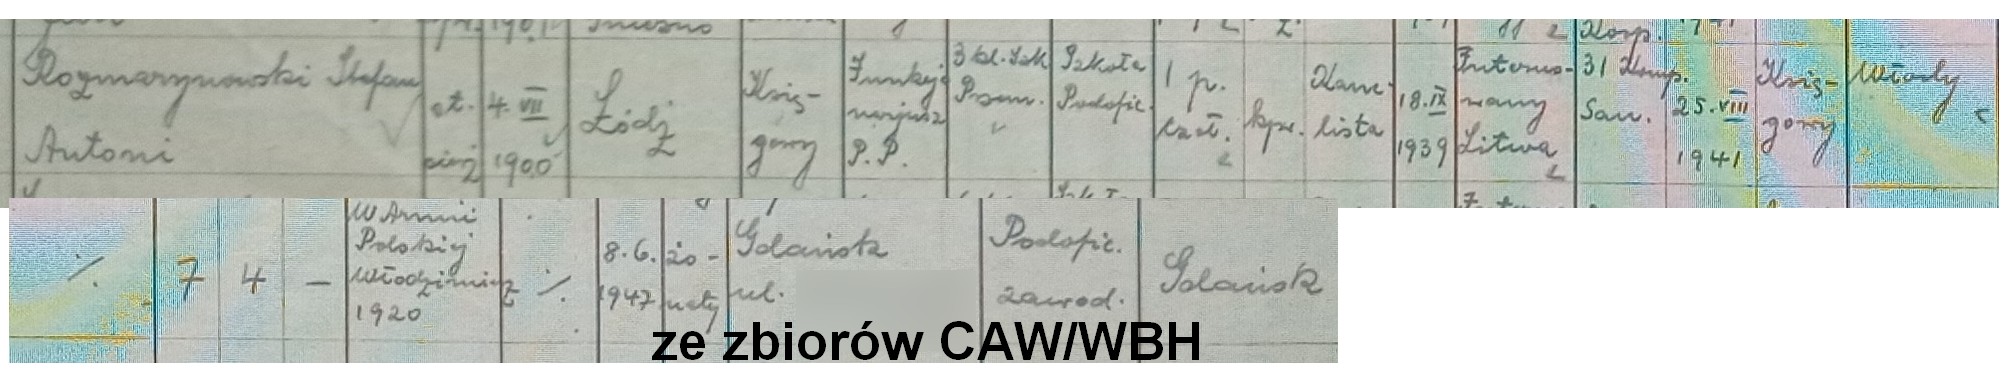 Rozmarynowski Stefan
Antoni
st.
sierż
4. VII
1900
Łódź
Księ-
gowy
Funkcj
narjusz
P.P.
3 kl. Szk
Pown.
Szkoła
Podofic.
1 p.
Łącz.
kpr.
Kance-
lista
18.IX
1939
Interno-
wany
Litwa
31 Komp.
San.
25.VIII
1941
Księ-
gowy
Włochy
%
7
4
—
W Armii
Polskiej
Włodzimierz
1920
%
8.6.
1947
żo-
naty
Gdańsk
ul.
Podofic.
zawod.
Gdańsk
ze zbiorów CAW/WBH